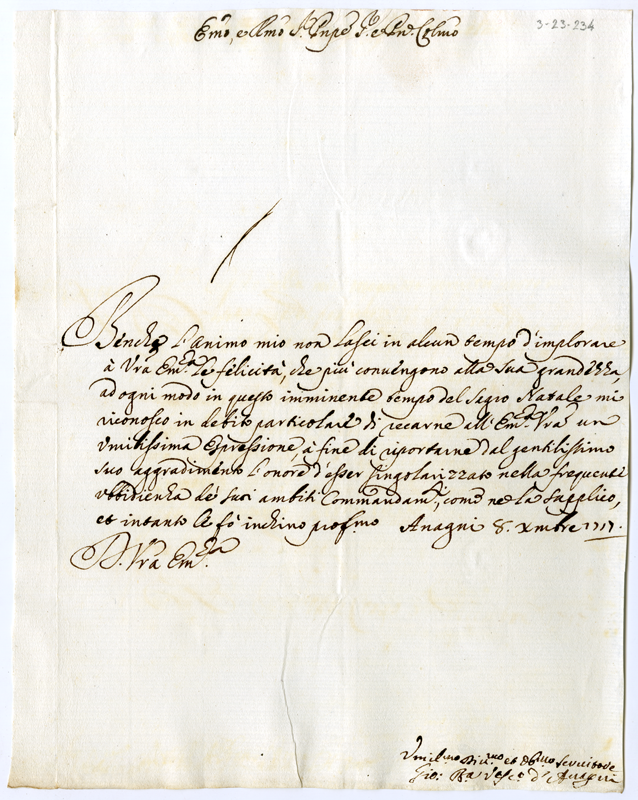 3-23-234
Emo, e Rmo Sr. Pnpe Sr. e Pne. Colmo
Benche l'animo mio non lasci in alcun tempo d'implorare
à Vra Emza. le felicità, che più convengono alla sua grandezza,
ad ogni modo in questo imminente tempo del Sagro Natale mi
riconosco in debito particolare di recarne all'Emza. Vra un
umilissima espressione, à fine di riportarne dal gentilissimo
suo aggradimento l'onore d'esser singolarizzato nella frequente
ubbidienza de suoi ambiti Commandamti., come ne la supplico,
et intanto le fò inchino profmo Anagni 8. Xmbre 1717.
D. Vra Emza.
Umilmo Divmo et Obmo Servitore
Gio: Ba. Vesco. d'Anagni